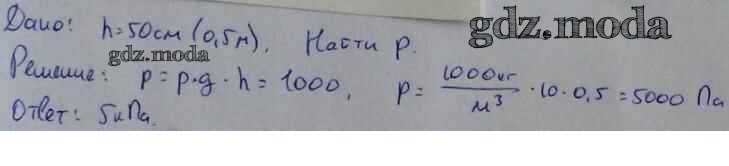 Дано: h=50см (0,5м). Найти p.
gdz.moda
gdz.moda
Решение: p=p·g·h=1000, p= 1000кг/м³ ·10·0,5=5000 Па
Ответ: 5кПа.